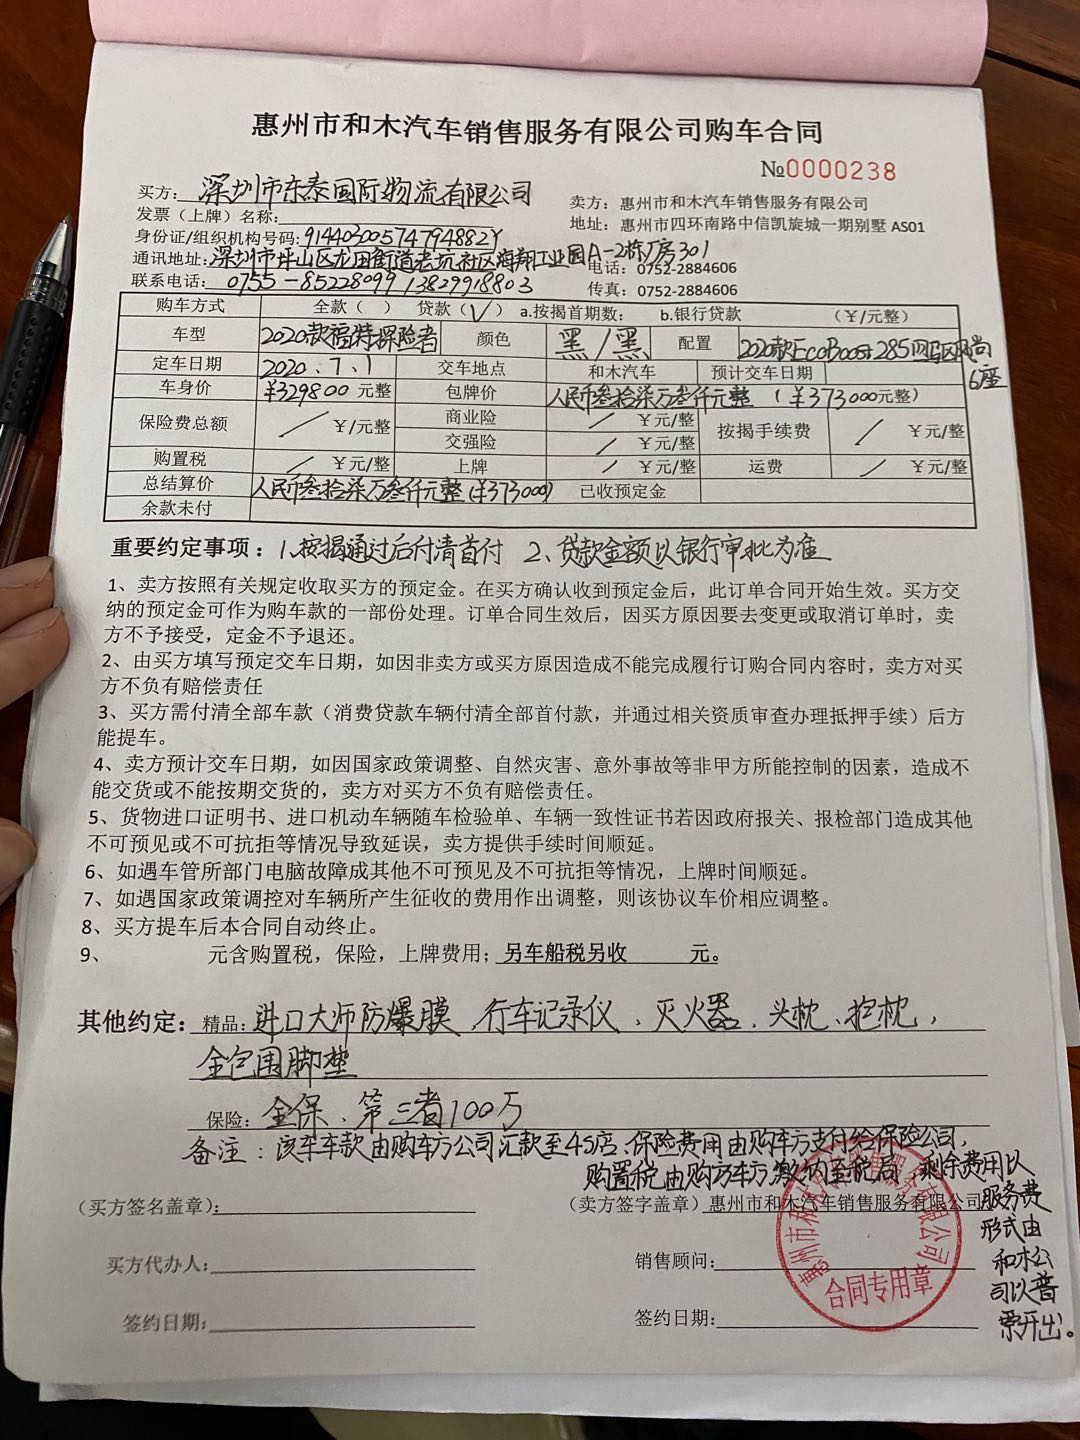 惠州市和木汽车销售服务有限公司购车合同
№0000238
买方：深圳市东泰国际物流有限公司
卖方：惠州市和木汽车销售服务有限公司
发票（上牌）名称：
地址：惠州市四环南路中信凯旋城一期别墅 AS01
身份证/组织机构号码：91440300574794882Y
通讯地址：深圳市坪山区龙田街道老坑社区海翔工业园A-2栋厂房301
电话：0752-2884606
联系电话：0755-85228099 13829918803
传真：0752-2884606
购车方式 全款（ ） 贷款（√） a.按揭首期数： b.银行贷款 （￥/元整）
车型 2020款福特探险者 颜色 黑/黑 配置 2020款EcoBoost 285四驱风尚6座
定车日期 2020.7.1 交车地点 和木汽车 预计交车日期
车身价 ￥329800元整 包牌价 人民币叁拾柒万叁仟元整（￥373000元整）
保险费总额 / ￥/元整 商业险 / ￥元/整 按揭手续费 / ￥元/整
交强险 / ￥元/整
购置税 / ￥元/整 上牌 / ￥元/整 运费 / ￥元/整
总结算价 人民币叁拾柒万叁仟元整(￥373000) 已收预定金
余款未付
重要约定事项：1、按揭通过后付清首付 2、贷款金额以银行审批为准
1、卖方按照有关规定收取买方的预定金。在买方确认收到预定金后，此订单合同开始生效。买方交
纳的预定金可作为购车款的一部份处理。订单合同生效后，因买方原因要去变更或取消订单时，卖
方不予接受，定金不予退还。
2、由买方填写预定交车日期，如因非卖方或买方原因造成不能完成履行订购合同内容时，卖方对买
方不负有赔偿责任
3、买方需付清全部车款（消费贷款车辆付清全部首付款，并通过相关资质审查办理抵押手续）后方
能提车。
4、卖方预计交车日期，如因国家政策调整、自然灾害、意外事故等非甲方所能控制的因素，造成不
能交货或不能按期交货的，卖方对买方不负有赔偿责任。
5、货物进口证明书、进口机动车辆随车检验单、车辆一致性证书若因政府报关、报检部门造成其他
不可预见或不可抗拒等情况导致延误，卖方提供手续时间顺延。
6、如遇车管所部门电脑故障成其他不可预见及不可抗拒等情况，上牌时间顺延。
7、如遇国家政策调控对车辆所产生征收的费用作出调整，则该协议车价相应调整。
8、买方提车后本合同自动终止。
9、 元含购置税，保险，上牌费用；另车船税另收 元。
其他约定：精品：进口大师防爆膜、行车记录仪、灭火器、头枕、抱枕，
全包围脚垫
保险：全保、第三者100万
备注：该车车款由购车方公司汇款至4S店、保险费用由购车方支付给保险公司，
购置税由购方车方缴纳至税局，剩余费用以
服务费
形式由
和木公
司以普
票开出。
（买方签名盖章）：
（卖方签字盖章）惠州市和木汽车销售服务有限公司
买方代办人：
销售顾问：
签约日期：
签约日期：
惠州市和木汽车销售服务有限公司
合同专用章